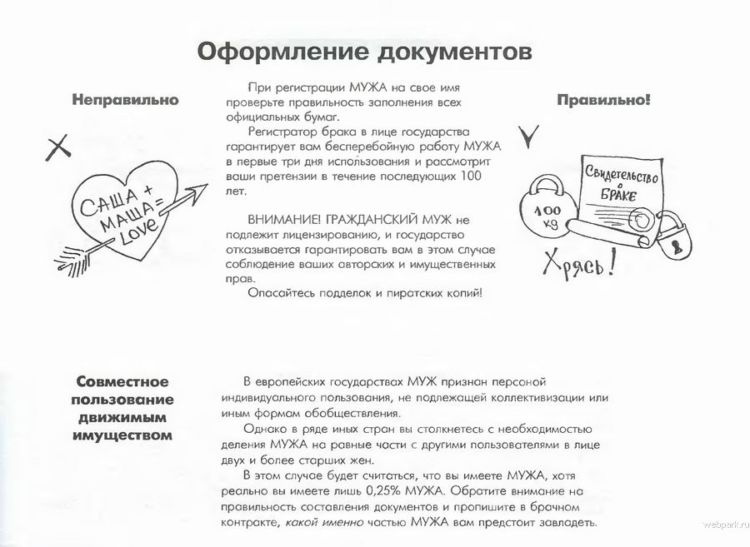 Оформление документов
Неправильно
При регистрации МУЖА на свое имя
проверьте правильность заполнения всех
официальных бумаг.
Регистратор брака в лице государства
гарантирует вам бесперебойную работу МУЖА
в первые три дня использования и рассмотрит
ваши претензии в течение последующих 100
лет.
ВНИМАНИЕ! ГРАЖДАНСКИЙ МУЖ не
подлежит лицензированию, и государство
отказывается гарантировать вам в этом случае
соблюдение ваших авторских и имущественных
прав.
Опасайтесь подделок и пиратских копий!
САША +
МАША =
LOVE
Правильно!
Свидетельство
о
БРАКЕ
100
кg
Хрясь!
Совместное
пользование
движимым
имуществом
В европейских государствах МУЖ признан персоной
индивидуального пользования, не подлежащей коллективизации или
иным формам обобществления.
Однако в ряде иных стран вы столкнетесь с необходимостью
деления МУЖА на равные части с другими пользователями в лице
двух и более старших жен.
В этом случае будет считаться, что вы имеете МУЖА, хотя
реально вы имеете лишь 0,25% МУЖА. Обратите внимание на
правильность составления документов и пропишите в брачном
контракте, какой именно частью МУЖА вам предстоит завладеть.
webpark.ru